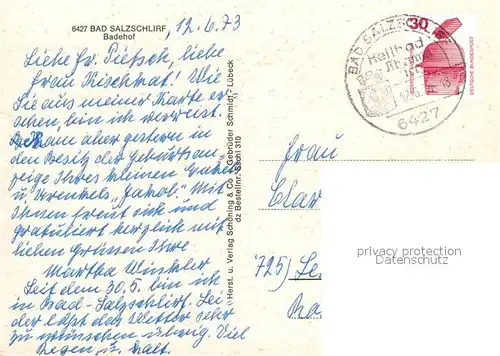 6427 BAD SALZSCHLIRF
Badehof
12.6.73
Liebe Fr. Pietsch, liebe
Frau Kischnat! Wie
Sie aus meiner Karte er-
sehen, bin ich verreist.
Bekam aber gestern in
den Besitz der Geburtsan-
zeige Ihres kleinen Enkels
u. Urenkels "Jakob". Mit
Ihnen freut sich und
gratuliert herzlich mit
lieben Grüssen Ihre
Martha Winkler
Seit dem 30.5. bin ich
in Bad-Salzschlirf. Lei-
der läßt das Wetter sehr
zu wünschen übrig. Viel
Regen, u. kalt.
Herst. u. Verlag Schöning & Co. + Gebrüder Schmidt, Lübeck
dz Bestellnr. Sschl 310
BAD SALZSCHLIRF
Heilbad
6427
30
DEUTSCHE BUNDESPOST
Frau
Clar
725) Le
privacy protection
Datenschutz